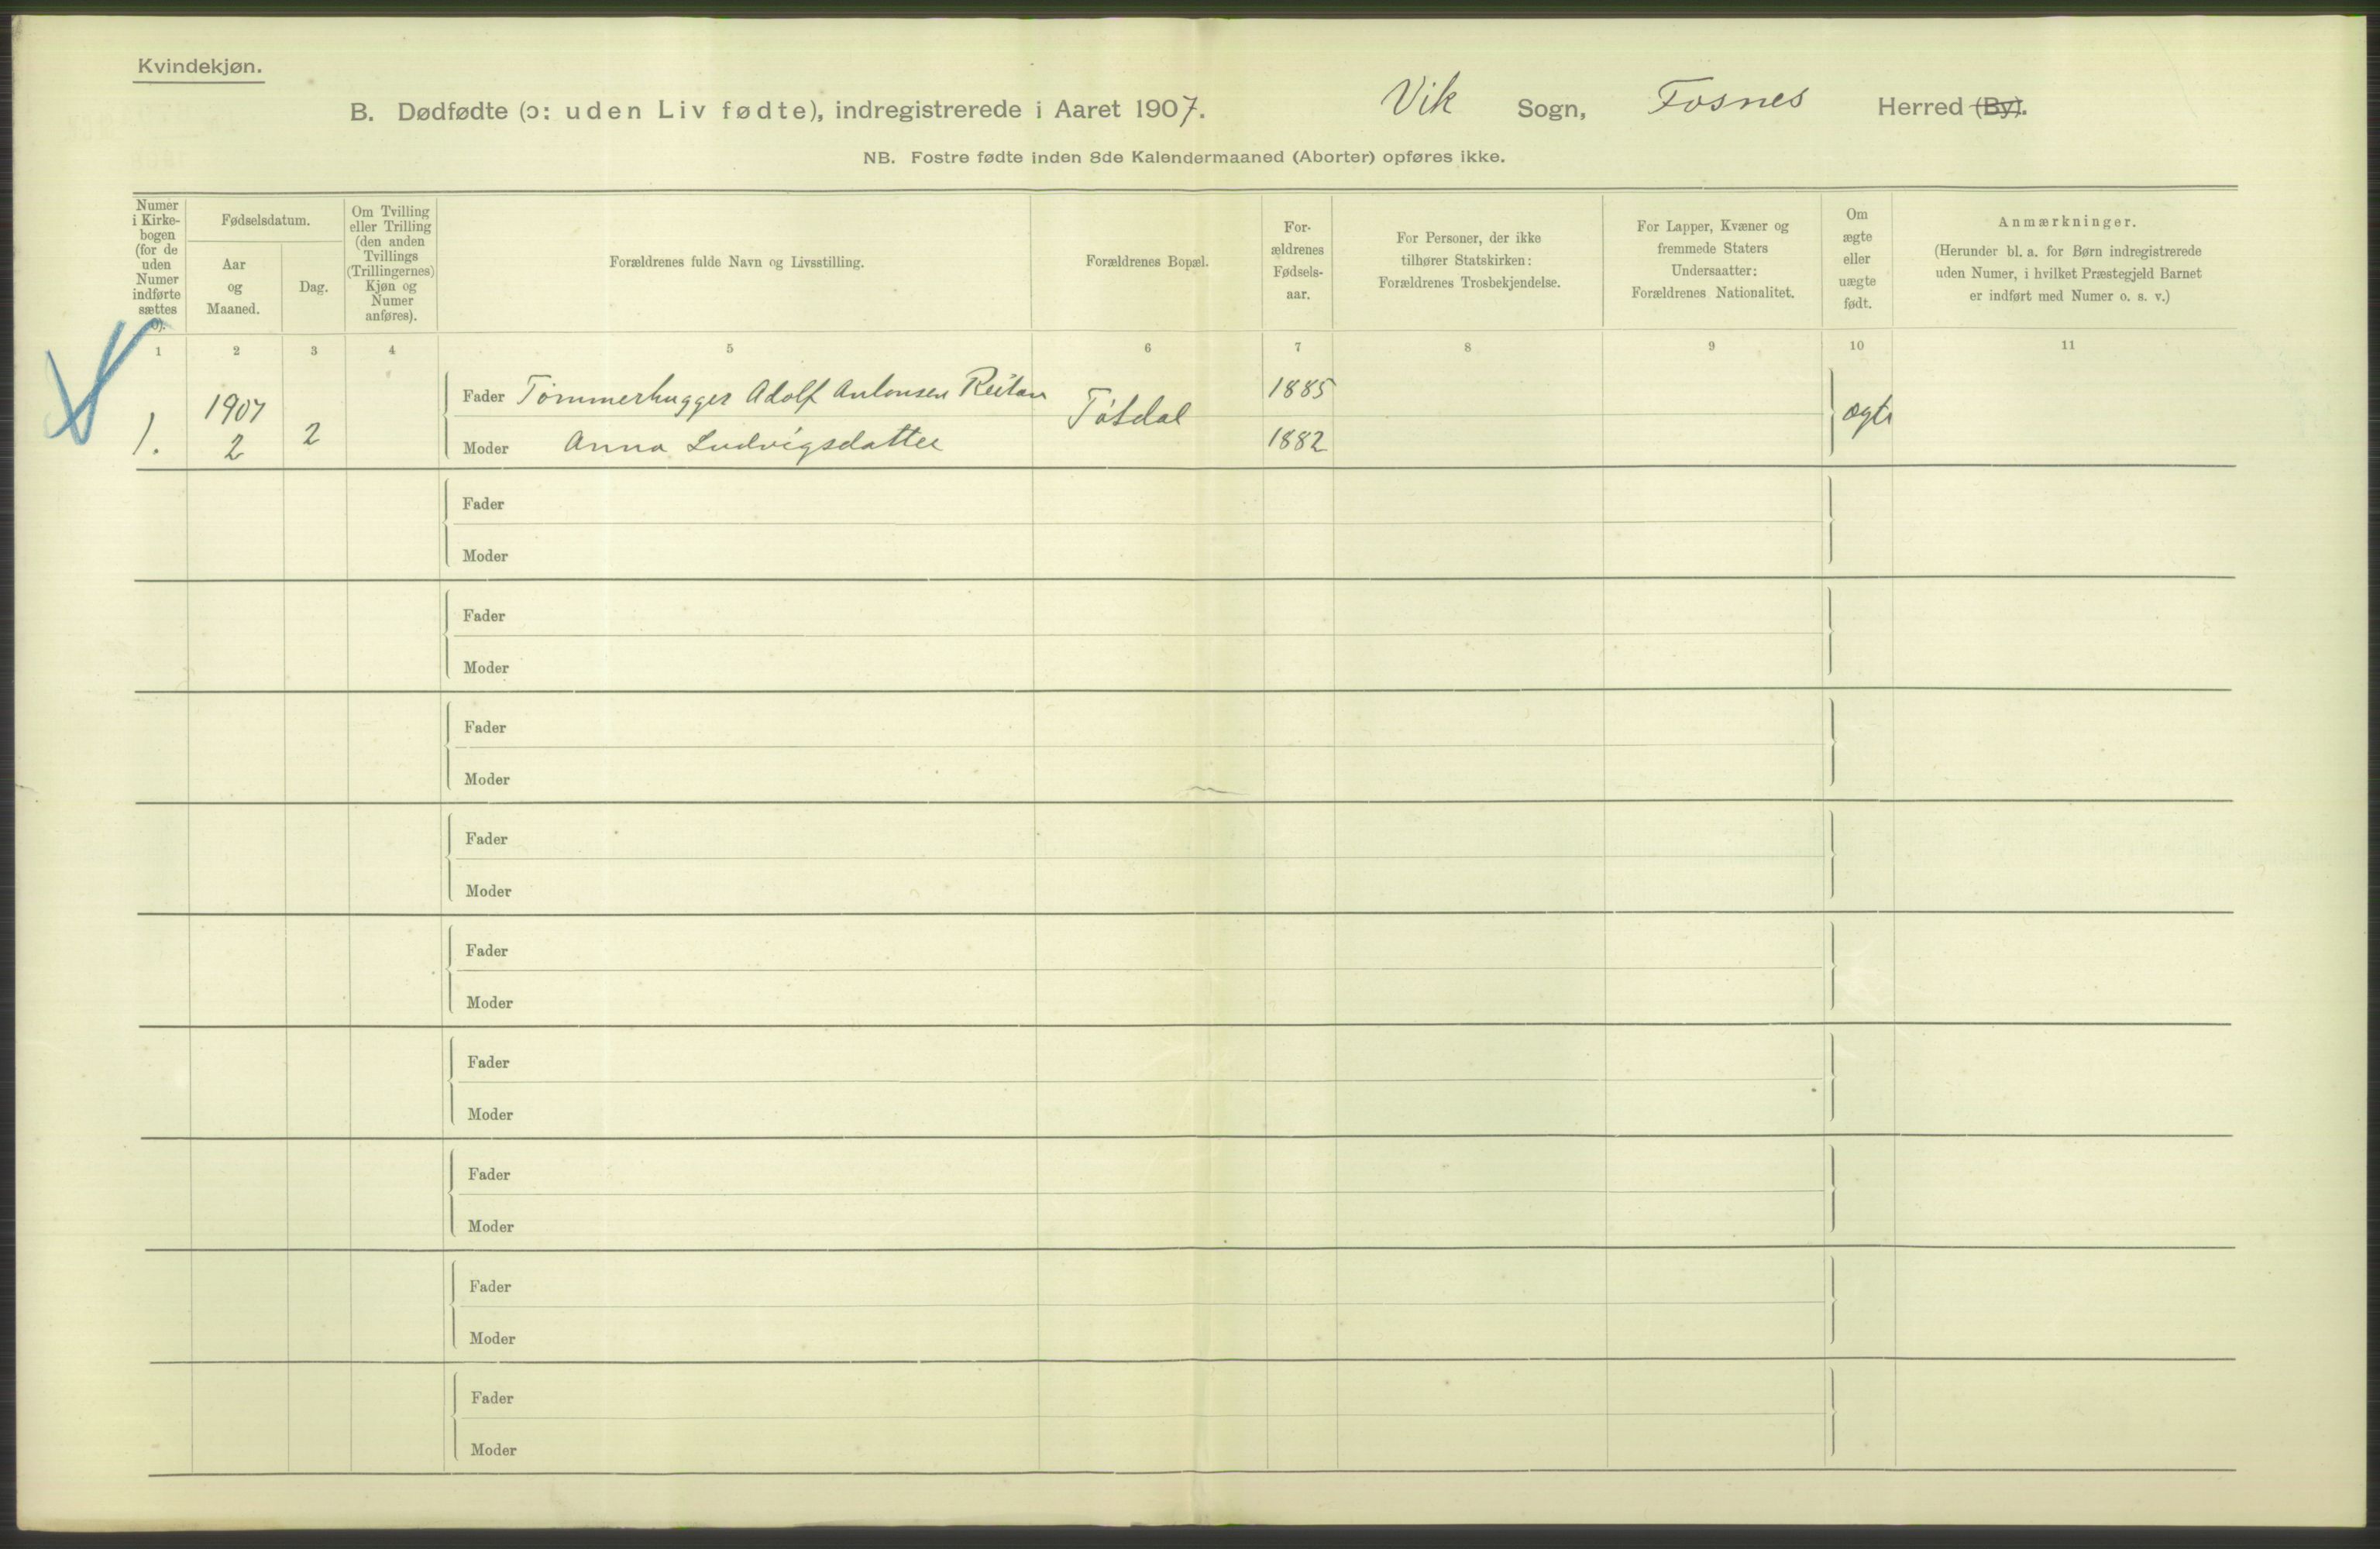 Kvindekjøn.
B. Dødfødte (ɔ: uden Liv fødte), indregistrerede i Aaret 1907. Vik Sogn, Fosnes Herred (By).
NB. Fostre fødte inden 8de Kalendermaaned (Aborter) opføres ikke.
Numer
i Kirke-
bogen
(for de
uden
Numer
indførte
sættes
0).
Fødselsdatum.
Aar
og
Maaned.
Dag.
Om Tvilling
eller Trilling
(den anden
Tvillings
(Trillingernes)
Kjøn og
Numer
anføres).
Forældrenes fulde Navn og Livsstilling.
Forældrenes Bopæl.
For-
ældrenes
Fødsels-
aar.
For Personer, der ikke
tilhører Statskirken:
Forældrenes Trosbekjendelse.
For Lapper, Kvæner og
fremmede Staters
Undersaatter:
Forældrenes Nationalitet.
Om
ægte
eller
uægte
født.
Anmærkninger.
(Herunder bl. a. for Børn indregistrerede
uden Numer, i hvilket Præstegjeld Barnet
er indført med Numer o. s. v.)
1 2 3 4 5 6 7 8 9 10 11
1.
1907
2
2
Fader Tømmerhugger Adolf Antonsen Reitan
Moder Anna Ludvigsdatter
Tøtdal
1885
1882
ægte
Fader
Moder
Fader
Moder
Fader
Moder
Fader
Moder
Fader
Moder
Fader
Moder
Fader
Moder
Fader
Moder
Fader
Moder